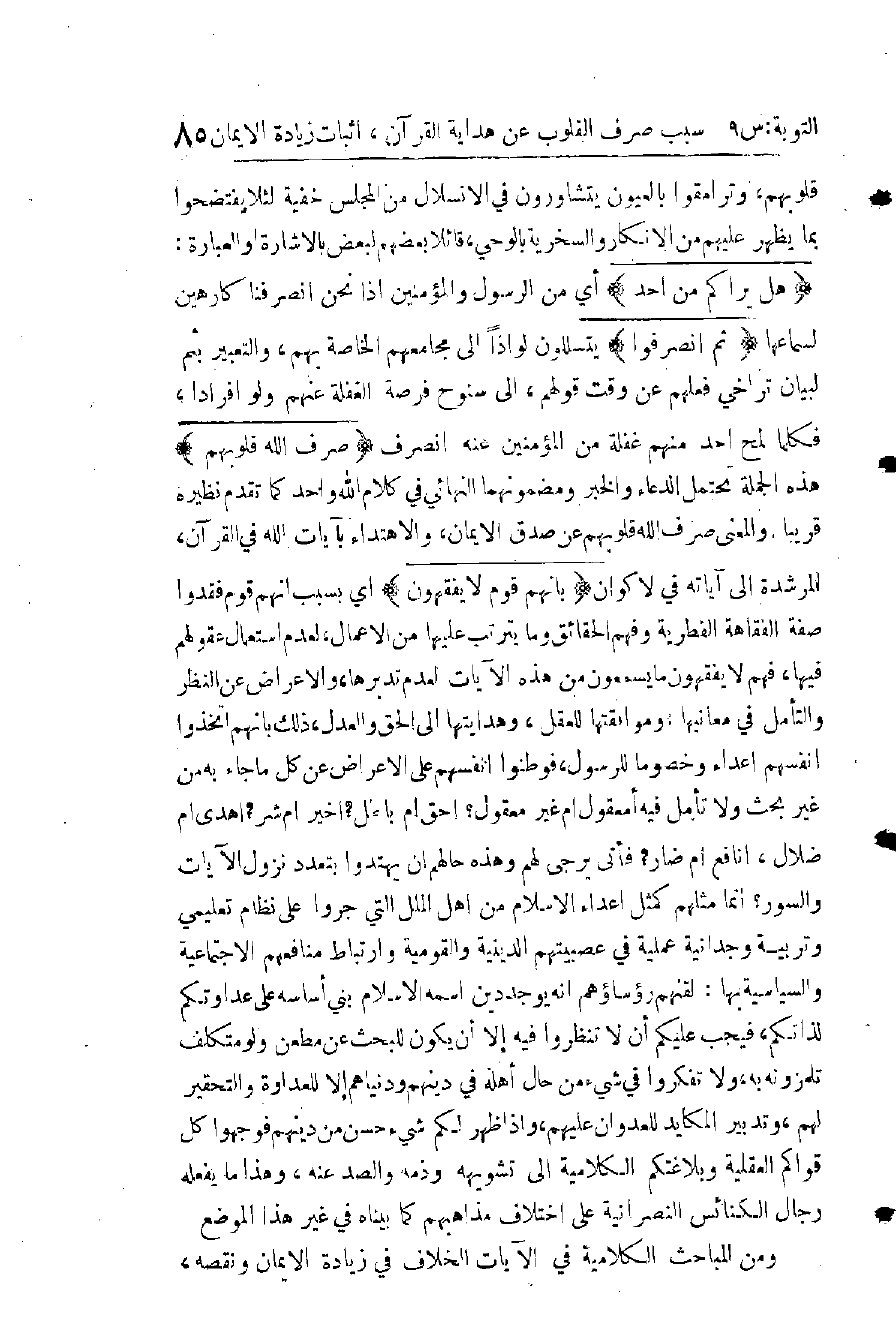 التوبة: س٩ سبب صرف القلوب عن هداية القرآن ، اثبات زيادة الايمان ٨٥
قلوبهم، وترامقوا بالعيون يتشاورون في الانسلال من المجلس خفية لئلا يفتضحوا
بما يظهر عليهم من الانكار والسخرية بالوحي، قائلا بعضهم لبعض بالاشارة او العبارة :
﴿ هل يراكم من احد ﴾ أي من الرسول والمؤمنين اذا نحن انصرفنا كارهين
لسماعها ﴿ ثم انصرفوا ﴾ يتسللون لواذاً الى مجامعهم الخاصة بهم، والتعبير بثم
لبيان تراخي فعلهم عن وقت قولهم ، الى سنوح فرصة الغفلة عنهم ولو افرادا ،
فكلما لمح احد منهم غفلة من المؤمنين عنه انصرف ﴿ صرف الله قلوبهم ﴾
هذه الجملة تحتمل الدعاء والخبر ومضمونهما النهائي في كلام الله واحد كما تقدم نظيره
قريبا . والمعنى صرف الله قلوبهم عن صدق الايمان، والاهتداء بآيات الله في القرآن،
المرشدة الى آياته في لاكوان ﴿ بانهم قوم لا يفقهون ﴾ اي بسبب انهم قوم فقدوا
صفة الفقاهة الفطرية وفهم الحقائق وما يترتب عليها من الاعمال، لعدم استعمال عقولهم
فيها، فهم لا يفقهون ما يسمعون من هذه الآيات لعدم تدبرها، والاعراض عن النظر
والتأمل في معانيها ، وموافقتها للعقل ، وهدايتها الى الحق والعدل، ذلك بانهم اتخذوا
انفسهم اعداء وخصوما للرسول، فوطنوا انفسهم على الاعراض عن كل ماجاء به من
غير بحث ولا تأمل فيه أمعقول ام غير معقول؟ احق ام باطل؟ اخير ام شر؟ اهدى ام
ضلال ، انافع ام ضار؟ فأنى يرجى لهم وهذه حالهم ان يهتدوا بتعدد نزول الآيات
والسور؟ انما مثلهم كمثل اعداء الاسلام من اهل الملل التي جروا على نظام تعليمي
وتربية وجدانية عملية في عصبيتهم الدينية والقومية وارتباط منافعهم الاجتماعية
والسياسية بها : لقنهم رؤساؤهم انه يوجد دين اسمه الاسلام بني أساسه على عداوتكم
لذاتكم، فيجب عليكم أن لا تنظروا فيه إلا أن يكون للبحث عن مطعن ولو متكلف
تلمزونه به، ولا تفكروا في شيء من حال أهله في دينهم ودنياهم إلا للعداوة والتحقير
لهم ، وتدبير المكايد للعدوان عليهم، واذا ظهر لكم شيء حسن من دينهم فوجهوا كل
قواكم العقلية وبلاغتكم الكلامية الى تشويهه وذمه والصد عنه ، وهذا ما يفعله
رجال الكنائس النصرانية على اختلاف مذاهبهم كما بيناه في غير هذا الموضع
ومن المباحث الكلامية في الآيات الخلاف في زيادة الايمان ونقصه ،